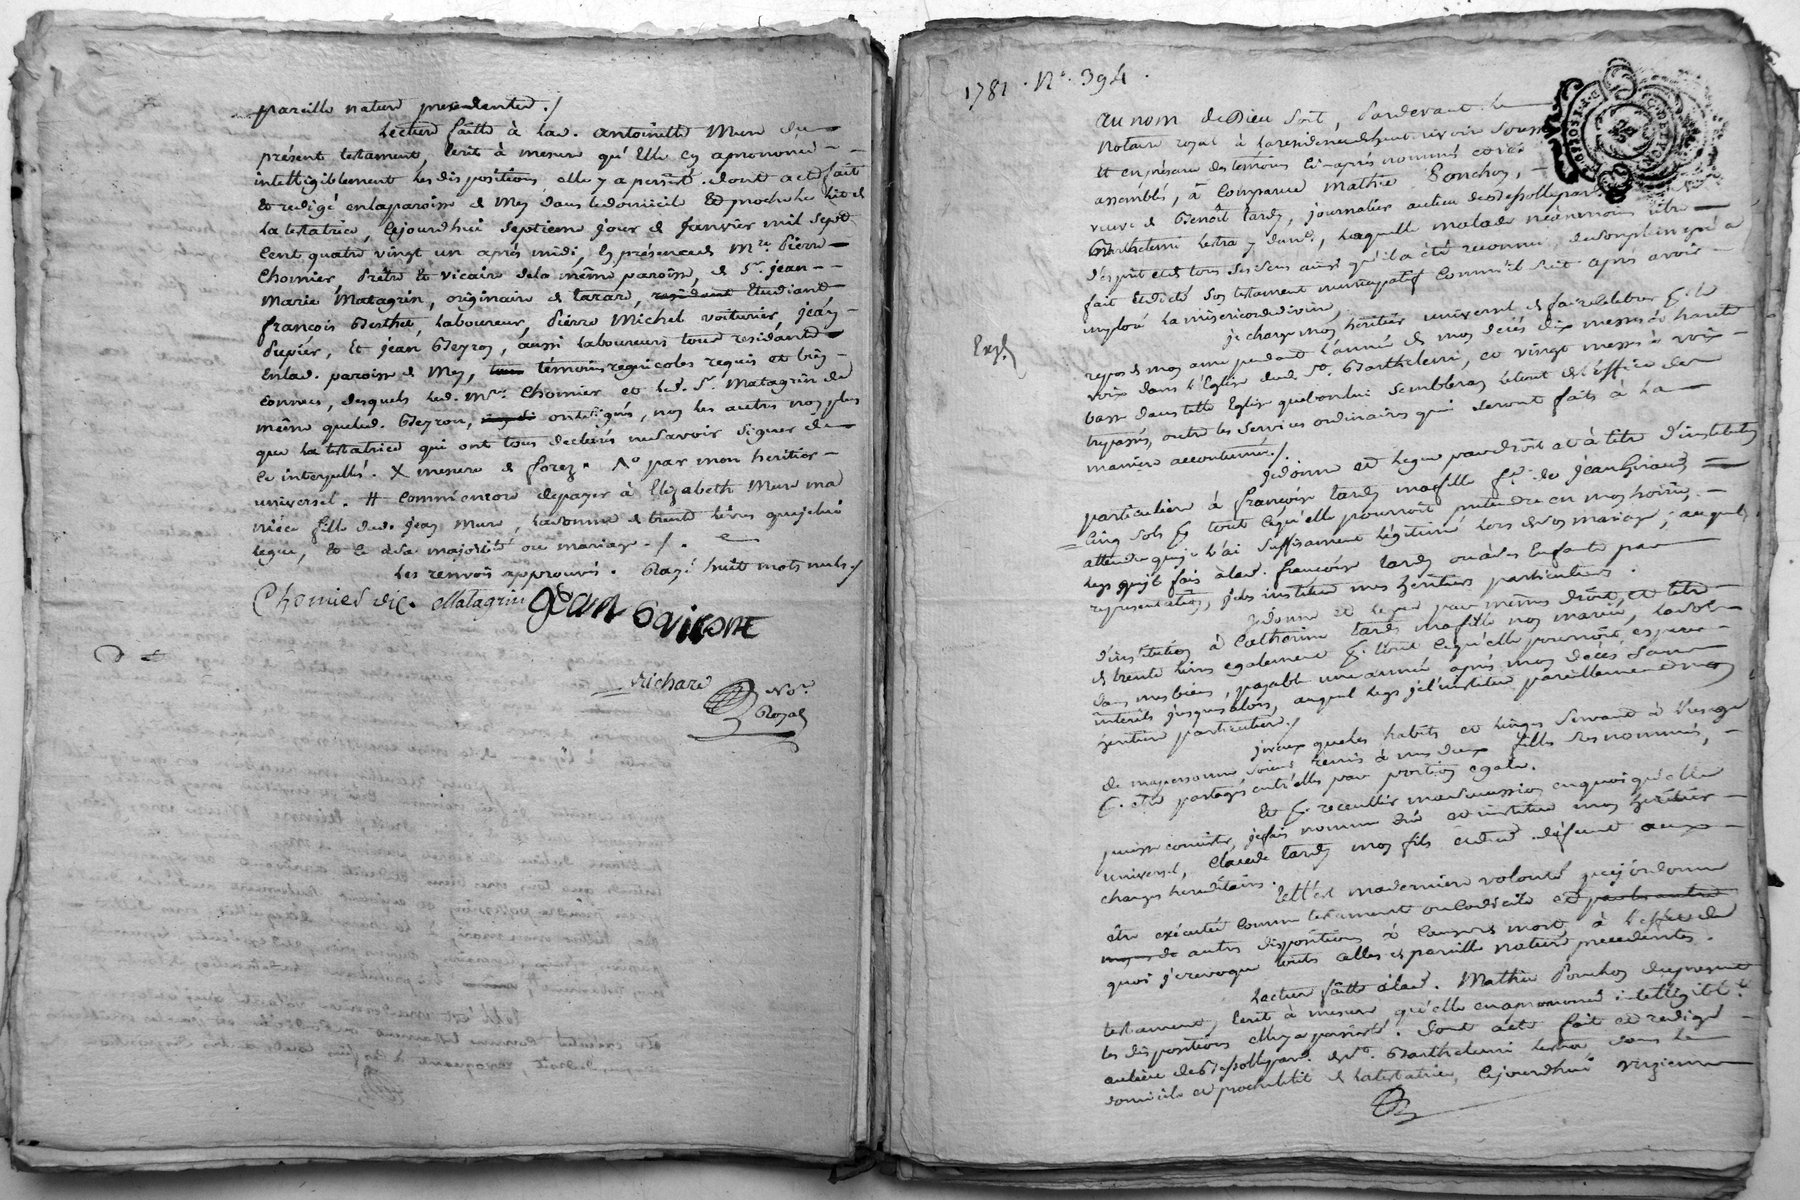 pareille nature precedentes ./
Lecture faitte à lad. antoinette Mure du
présent testament, écrit à mesure qu'Elle en a prononcé
intelligiblement les dispositions, elle y a persisté. dont acte fait
Et redigé en la paroisse de Mey dans le domicile Et proche le lit de
la testatrice, Cejourdhui septieme jour de Janvier mil sept
Cent quatre vingt un après midi, En présence de Mre. Pierre
Chomier Prêtre Et vicaire de la même paroisse, de Sr. jean
Marie Matagrin, originaire de tarare, residant Etudiant
françois Berthet, laboureur, Pierre Michel voiturier, jean
Dupier, Et jean Peyron, aussi laboureurs tous residants
En lad. paroisse de Mey, tous témoins regnicoles requis et bien
connus, desquels led. Mre. Chomier et led. Sr. Matagrin de
même que led. Peyron, ont signé, non les autres non plus
que la testatrice qui ont tous declarés ne savoir signer de
Ce interpellés. X mesure de forez. par mon heritier
universel. # comme encore de payer à Elizabeth Mure ma
niéce fille dud. jean Mure, la somme de trente livres que je lui
legue, Et ce à sa majorité ou mariage ./.
Les renvois approuvés. Rayé huit mots nuls ./
Chomier vic. Matagrin jean
Richard
No.re
Royal
1781. No. 394.
Au nom de Dieu soit, Pardevant le
Notaire royal à la residence de
Et en présence des temoins Ci-après nommés et
assemblés, à Comparue Mathie Ponchon,
veuve de Benoît tardy, journalier au lieu de
Barthelemi Lestra y dem.t, Laquelle malade néanmoins libre
d'esprit et de tous ses sens ainsi qu'il a été reconnu, de son plein gré a
fait Et dicté son testament nuncupatif Comm'il suit après avoir
imploré La misericorde divine,
je charge mon héritier universel de faire célébrer p.r le
repos de mon ame pendant l'année de mon décés dix messes à haute
voix dans l'Eglise dud. St. Barthelemi, et vingt messes à voix
basse dans telle Eglise que bon lui semblera le tout de l'Office des
trepassés, outre les Services ordinaires qui seront faits à la
maniere accoutumée ./.
Exp.
Je donne et legue par droit et à titre d'institution
particuliere à françoise tardy ma fille f.e de jean Giraud
Cinq sols p.r tout ce qu'elle pourroit pretendre en mon hoirie,
attendu que je l'ai suffisament légitimé lors de son mariage; auquel
legs que je fais à lad. françoise tardy ou à ses Enfants par
representation, je les institue mes heritiers particuliers.
Je donne et legue par mêmes droit et titre
d'institution à Catherine tardy ma fille non mariée, la somme
de trente livres egalement p.r tout ce qu'elle pourroit esperer
dans mes biens, payable une année après mon décès sans
interêts jusqu'alors, auquel legs je l'institue pareillement mon
heritiere particuliere ./
je veux que les habits et linges servant à l'usage
de ma personne, soient remis à mes deux filles sus nommées,
p.r être partagés entr'elles par portion egale.
Et p.r recueillir ma succession en quoi qu'elle
puisse consister, je fais nomme crée et institue mon heritier
universel, Claude tardy mon fils et dud. défunt aux
charges hereditaires.
Telle est ma derniere volonté que j'ordonne
être exécutée comme testament ou Codicile et par toutes
autres dispositions à cause de mort, à l'effet de
quoi je revoque toutes celles de pareille nature precedentes.
Lecture faitte à lad. Mathie Ponchon du present
testament, Ecrit à mesure qu'elle en a prononcé intelligibl.t
les dispositions elle y a persisté. dont acte fait et redigé
au lieu de St. Barthelemi Lestra dans le
domicile et proche le lit de la testatrice, Cejourdhui onzieme